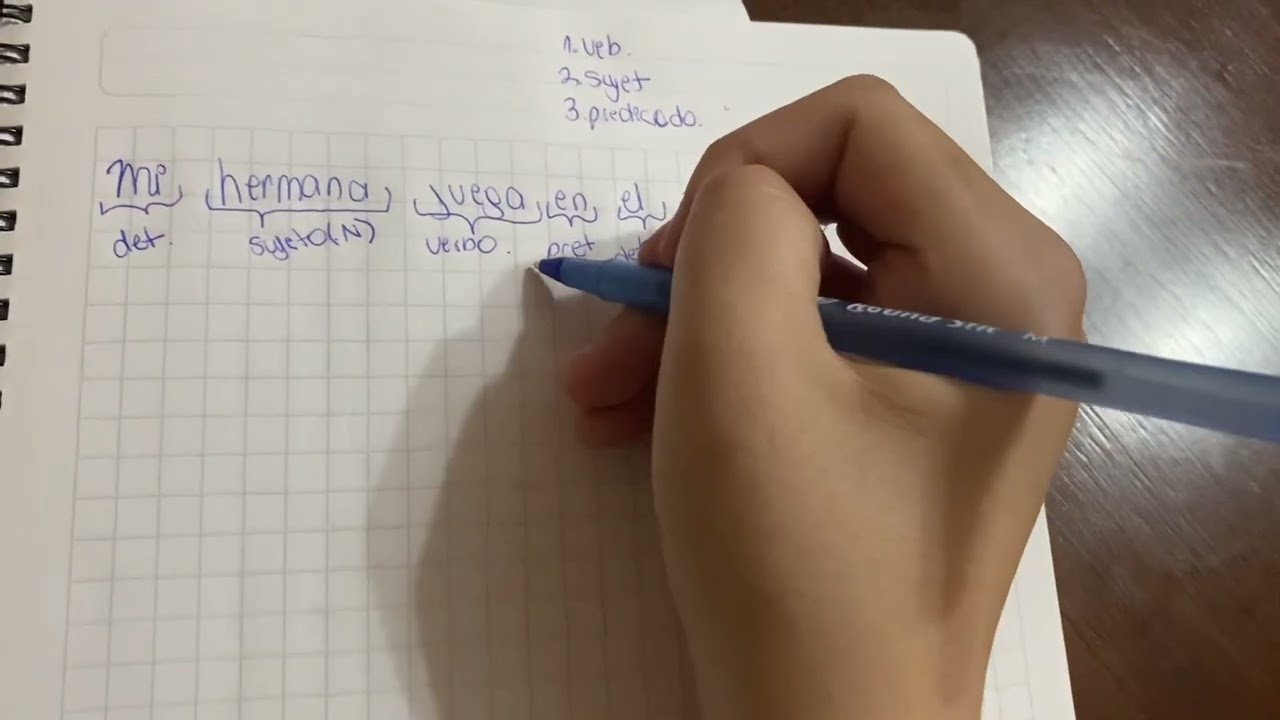 1. veb.
2. sujet
3. predicado.
Mi hermana juega en el
det. sujeto(N) verbo. pret det
Round Stic M